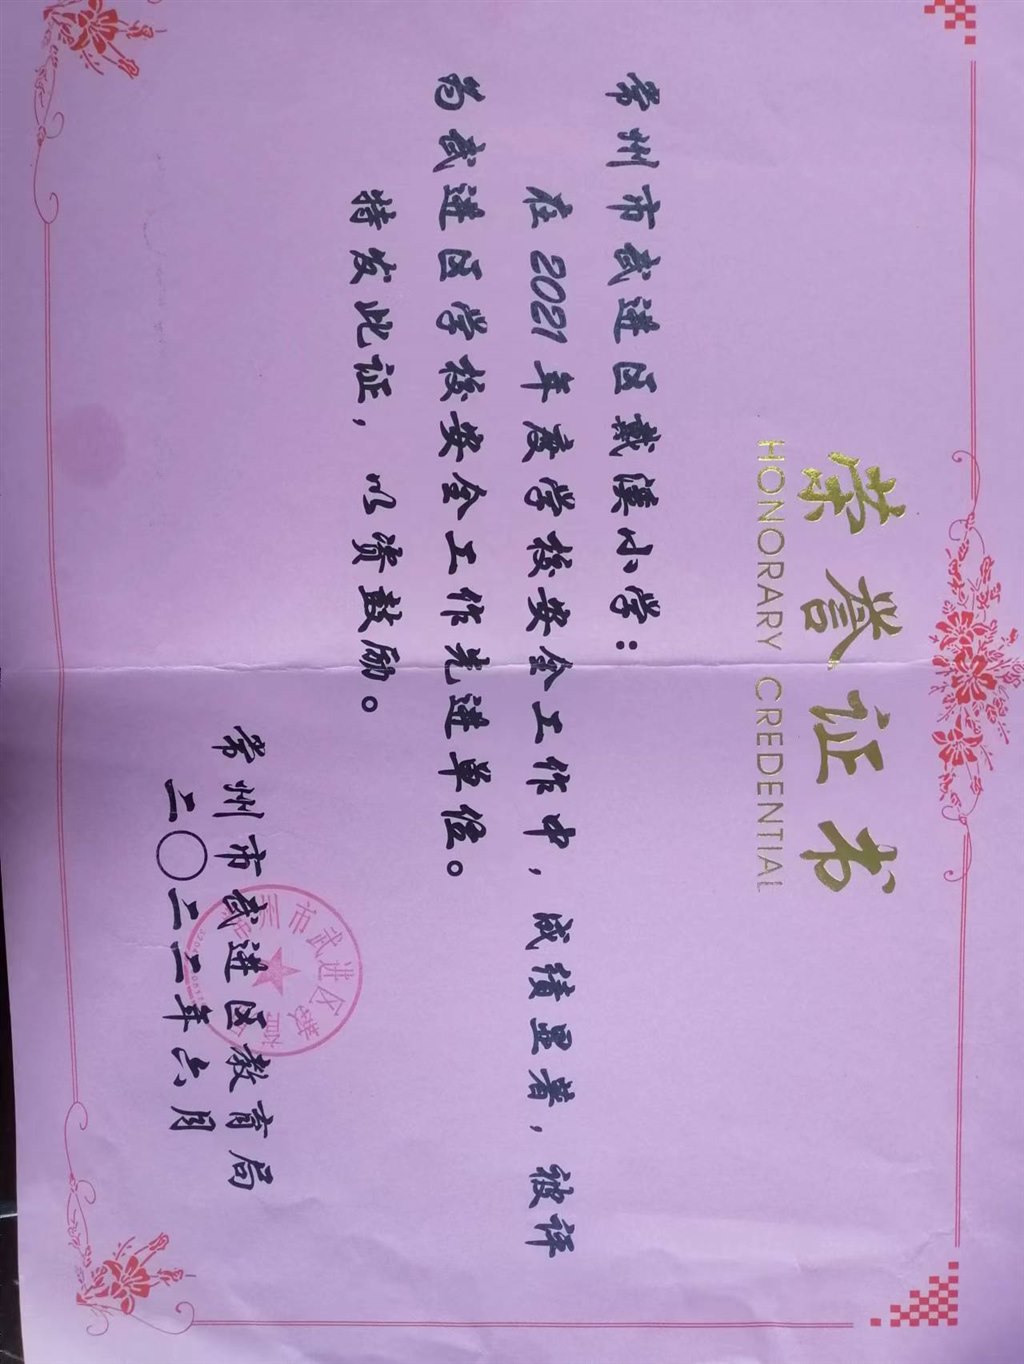 荣誉证书
HONORARY CREDENTIAL
常州市武进区戴溪小学：
在2021年度学校安全工作中，成绩显著，被评
为武进区学校安全工作先进单位。
特发此证，以资鼓励。
常州市武进区教育局
二〇二二年六月
州市武进区教育